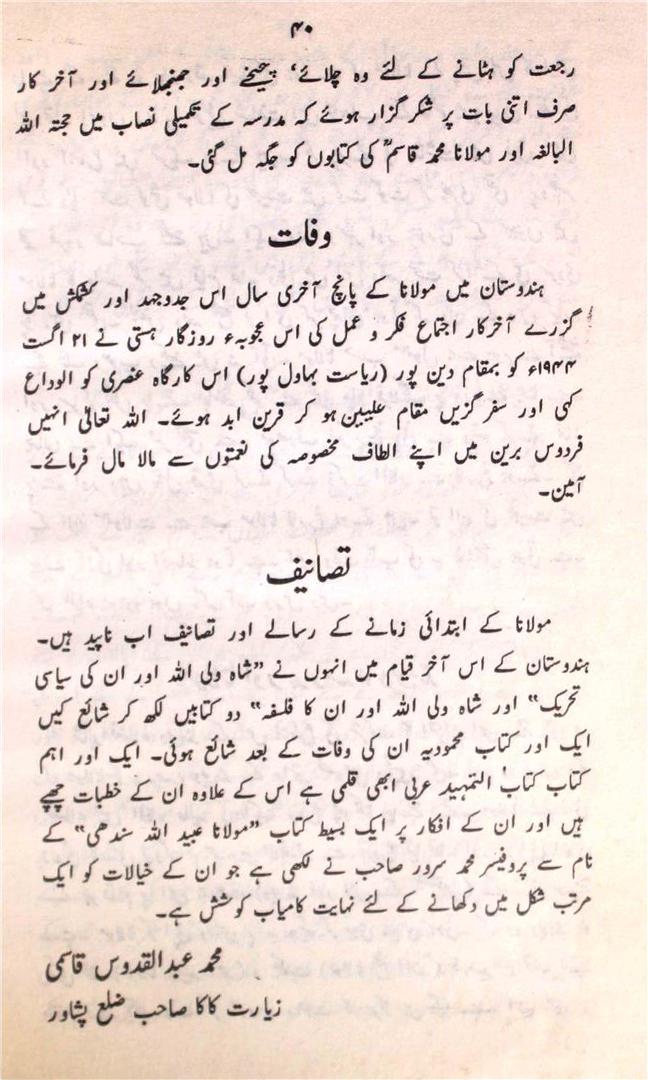 ۴۰
رجعت کو ہٹانے کے لئے وہ چلائے، چیخے اور جھنجلائے اور آخر کار
صرف اتنی بات پر شکر گزار ہوئے کہ مدرسہ کے تکمیلی نصاب میں حجتہ اللہ
البالغہ اور مولانا محمد قاسمؒ کی کتابوں کو جگہ مل گئی۔
وفات
ہندوستان میں مولانا کے پانچ آخری سال اس جدوجہد اور کشمکش میں
گزرے آخرکار اجتماع فکر و عمل کی اس عجوبہء روزگار ہستی نے ۲۱ اگست
۱۹۴۴ء کو بمقام دین پور (ریاست بہاول پور) اس کارگاہ عنصری کو الوداع
کہی اور سفر گزیں مقام علیین ہو کر قرین ابد ہوئے۔ اللہ تعالیٰ انہیں
فردوس برین میں اپنے الطاف مخصوصہ کی نعمتوں سے مالا مال فرمائے۔
آمین۔
تصانیف
مولانا کے ابتدائی زمانے کے رسالے اور تصانیف اب ناپید ہیں۔
ہندوستان کے اس آخر قیام میں انہوں نے "شاہ ولی اللہ اور ان کی سیاسی
تحریک" اور شاہ ولی اللہ اور ان کا فلسفہ" دو کتابیں لکھ کر شائع کیں
ایک اور کتاب محمودیہ ان کی وفات کے بعد شائع ہوئی۔ ایک اور اہم
کتاب کتاب التمہید عربی ابھی قلمی ہے اس کے علاوہ ان کے خطبات چھپے
ہیں اور ان کے افکار پر ایک بسیط کتاب "مولانا عبید اللہ سندھی" کے
نام سے پروفیسر محمد سرور صاحب نے لکھی ہے جو ان کے خیالات کو ایک
مرتب شکل میں دکھانے کے لئے نہایت کامیاب کوشش ہے۔
محمد عبدالقدوس قاسمی
زیارت کاکا صاحب ضلع پشاور